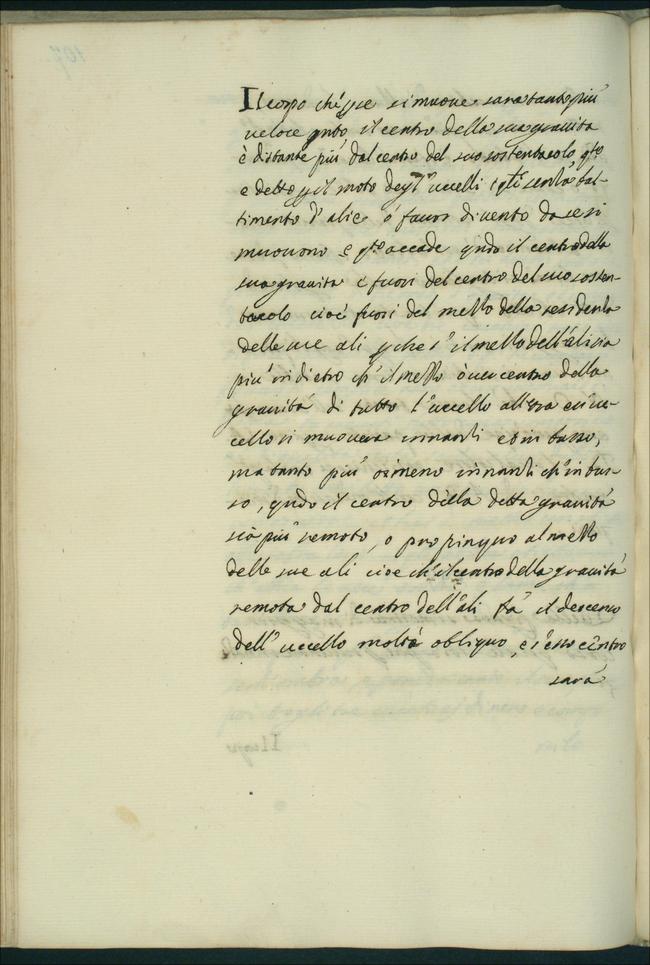 Il corpo ché p se si muove sara tanto piu
veloce qnto il centro della sua gravita
è distante piu dal centro del suo sostentacolo qto
e detto p il moto degl' uccelli i qli senza bat-
timento d' alie o favor di vento da se si
muovono e qto accade qndo il centro della
sua gravita è fuori del centro del suo sosten-
tacolo cioè fuori del mezzo della residenza
delle sue ali p che s' il mezzo dell'alie sia
piu indietro ch' il mezzo ò ver centro della
gravità di tutto l'uccello all'ora esso uc-
cello si movera innanzi et in basso,
ma tanto piu o meno innanzi ch' in bas-
so, qndo il centro della detta gravità
sia piu remoto, o propinquo al mezzo
delle sue ali cioe ch' il centro della gravità
remota dal centro dell' ali fa il descenso
dell' uccello molto obliquo, e s' esso centro
sarà
107